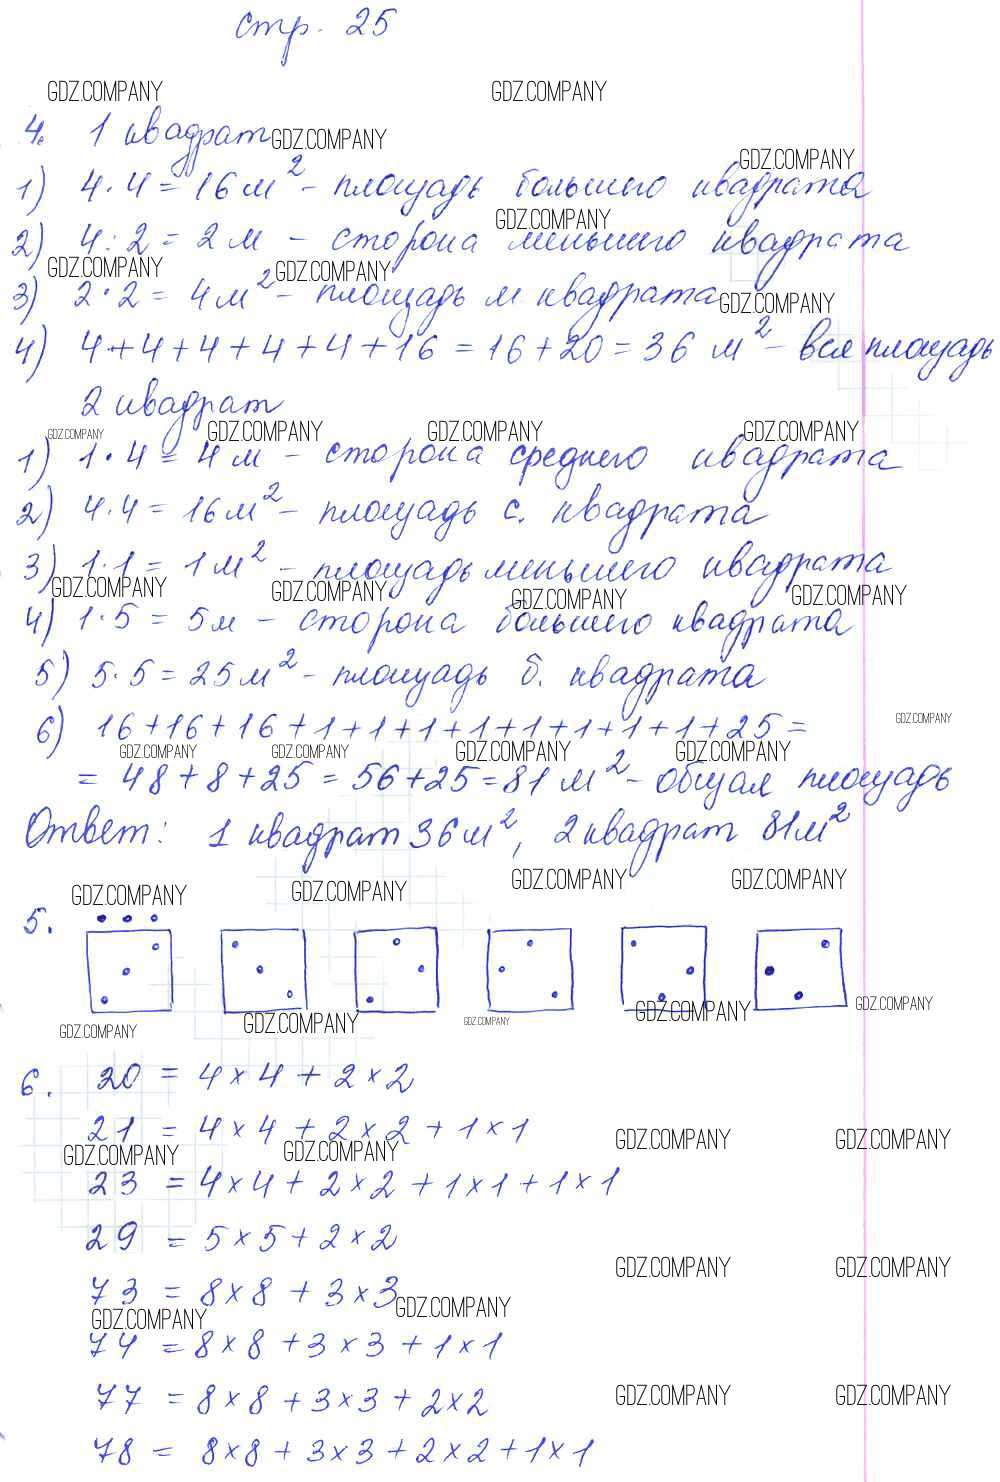 стр. 25
GDZ.COMPANY GDZ.COMPANY
4. 1 квадрат GDZ.COMPANY
GDZ.COMPANY
1) 4·4 = 16 м² - площадь большего квадрата
GDZ.COMPANY
2) 4:2 = 2 м - сторона меньшего квадрата
GDZ.COMPANY GDZ.COMPANY
3) 2·2 = 4 м² - площадь м квадрата GDZ.COMPANY
4) 4+4+4+4+4+16 = 16+20 = 36 м² - вся площадь
2 квадрат
GDZ.COMPANY GDZ.COMPANY GDZ.COMPANY GDZ.COMPANY
1) 1·4 = 4 м - сторона среднего квадрата
2) 4·4 = 16 м² - площадь с. квадрата
3) 1·1 = 1 м² - площадь меньшего квадрата
GDZ.COMPANY GDZ.COMPANY GDZ.COMPANY GDZ.COMPANY
4) 1·5 = 5 м - сторона большего квадрата
5) 5·5 = 25 м² - площадь б. квадрата
GDZ.COMPANY
6) 16+16+16+1+1+1+1+1+1+1+1+25 =
GDZ.COMPANY GDZ.COMPANY GDZ.COMPANY GDZ.COMPANY
= 48+8+25 = 56+25 = 81 м² - общая площадь
Ответ: 1 квадрат 36 м², 2 квадрат 81 м²
GDZ.COMPANY GDZ.COMPANY GDZ.COMPANY GDZ.COMPANY
5.
GDZ.COMPANY GDZ.COMPANY GDZ.COMPANY GDZ.COMPANY GDZ.COMPANY
6. 20 = 4×4+2×2
21 = 4×4+2×2+1×1
GDZ.COMPANY GDZ.COMPANY GDZ.COMPANY GDZ.COMPANY
23 = 4×4+2×2+1×1+1×1
29 = 5×5+2×2
GDZ.COMPANY GDZ.COMPANY
73 = 8×8+3×3
GDZ.COMPANY GDZ.COMPANY
74 = 8×8+3×3+1×1
77 = 8×8+3×3+2×2 GDZ.COMPANY GDZ.COMPANY
78 = 8×8+3×3+2×2+1×1